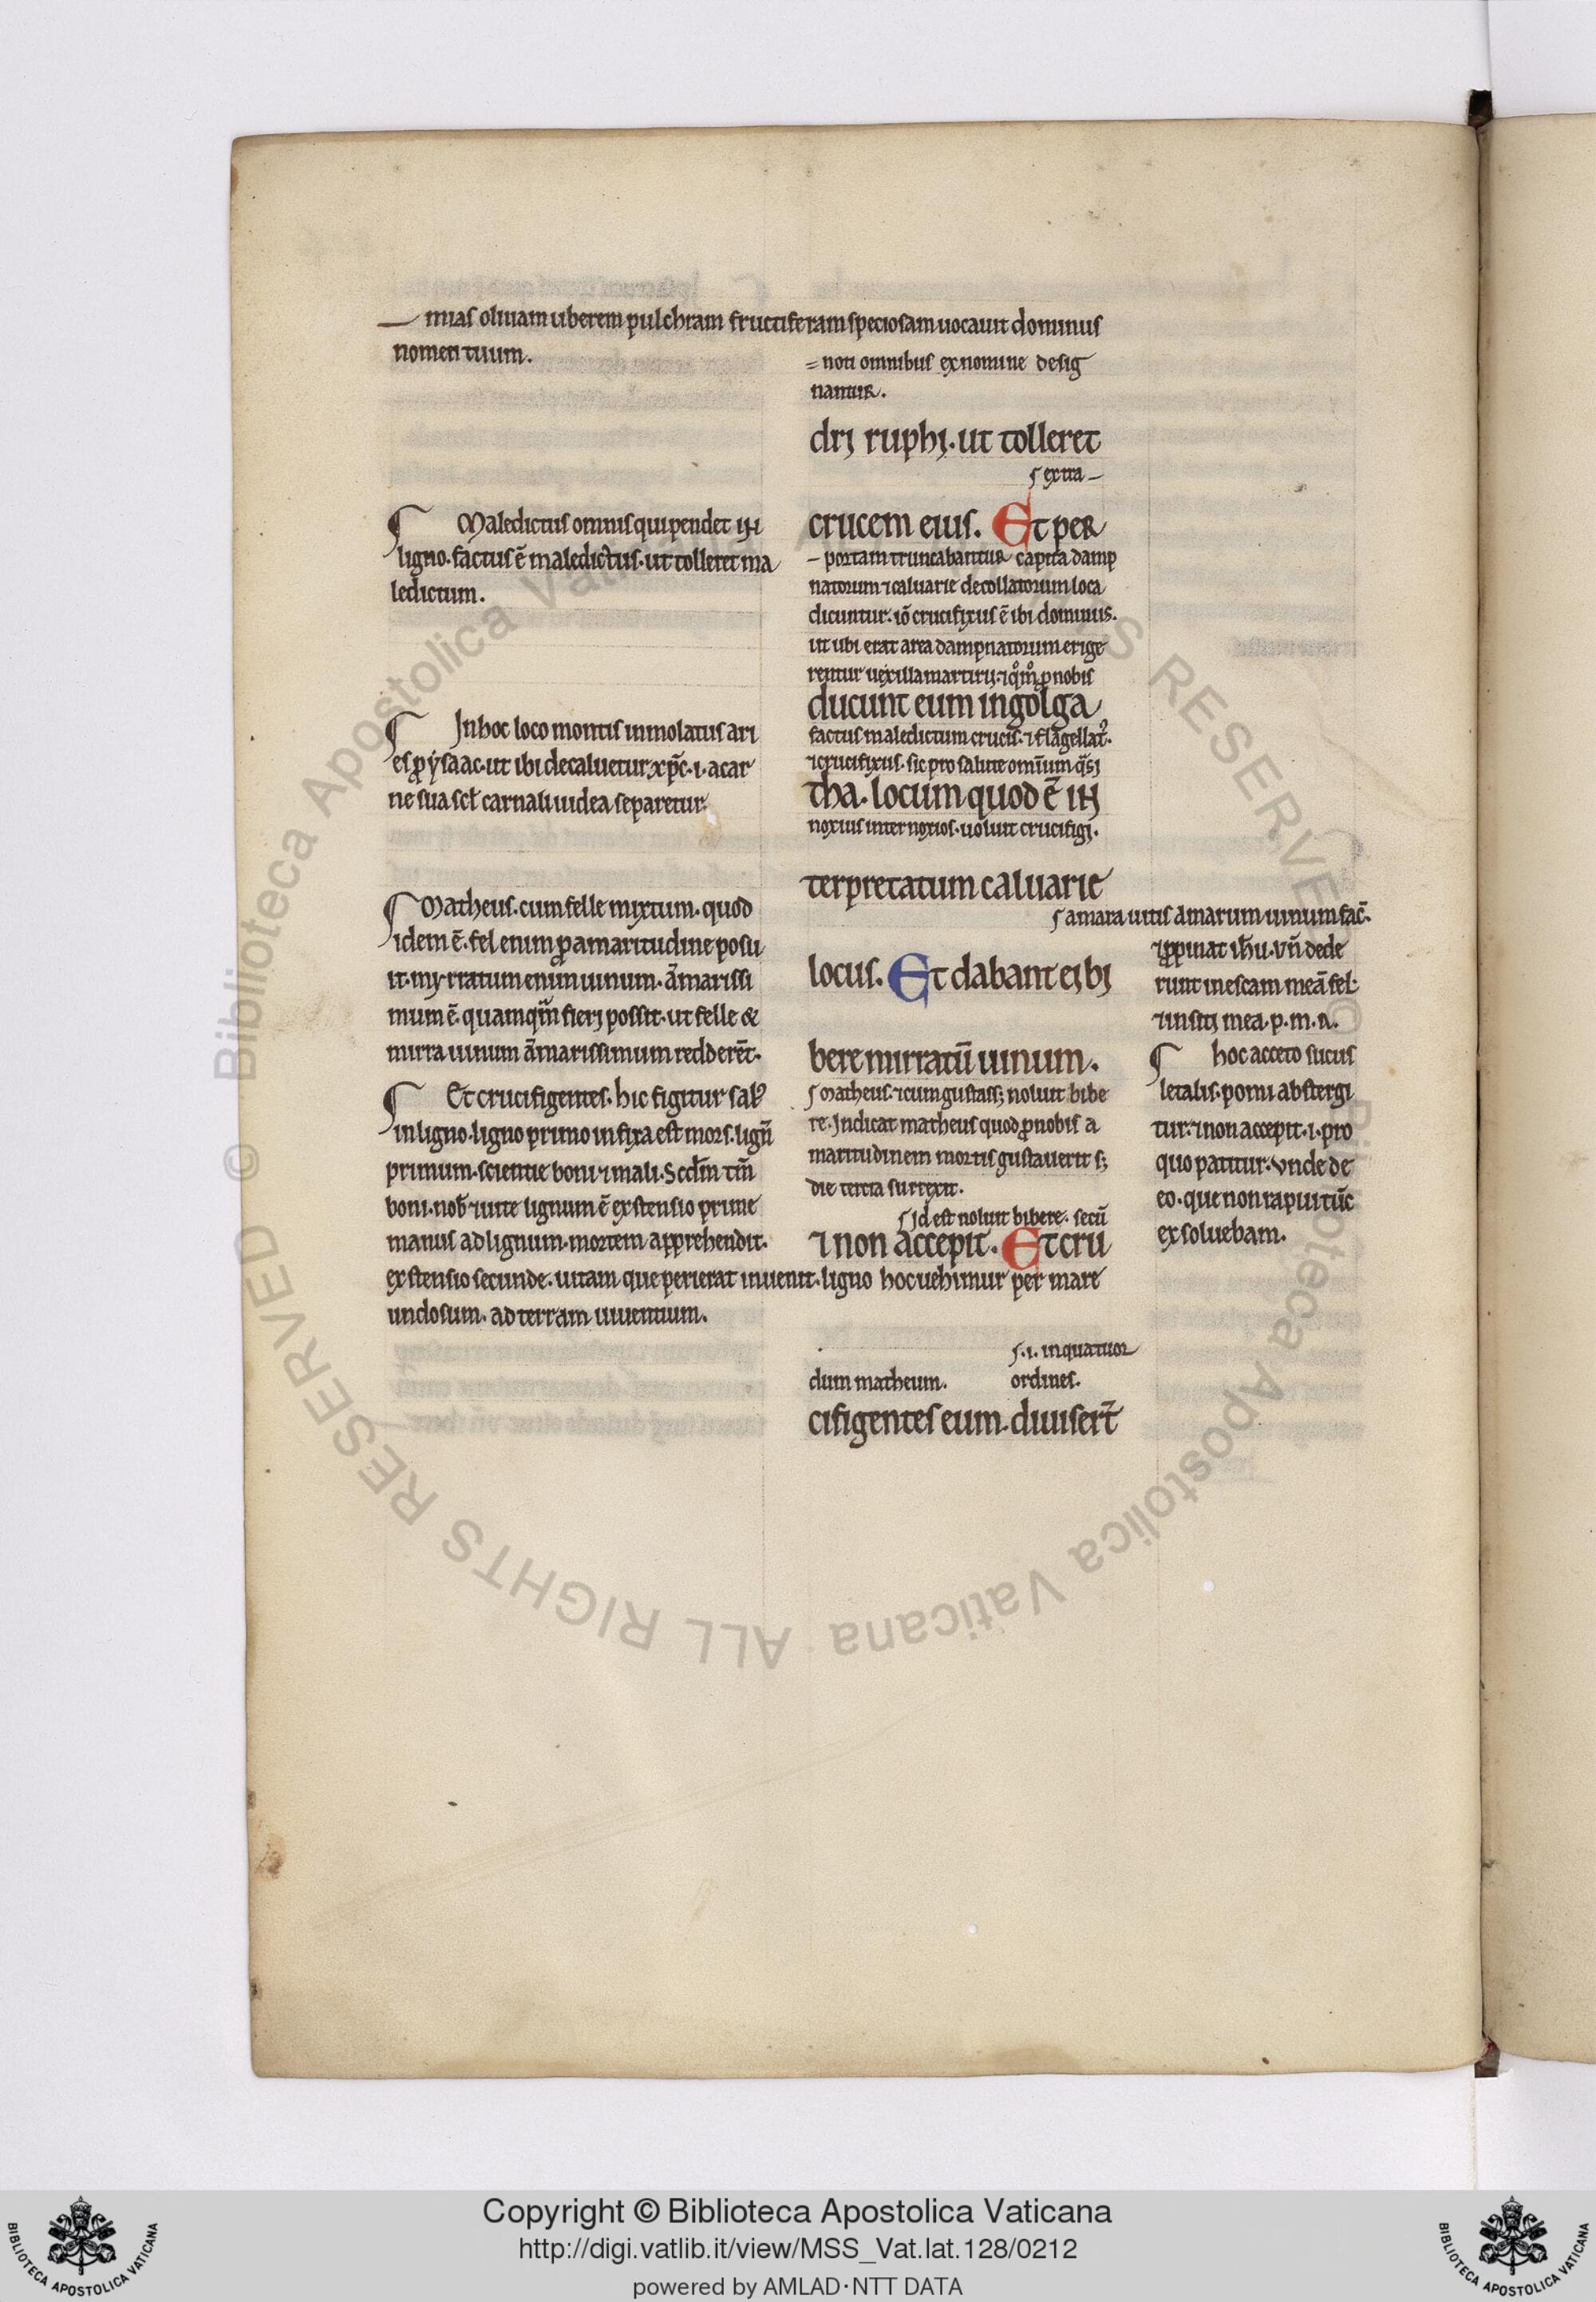 mias oliuam uberem pulchram fructiferam speciosam uocauit dominus
nomen tuum.
= non omnibus ex nomine desig
nantur.
drj ruphj. ut tolleret
extra –
crucem eius. Et per
– portam truncabantur capita damp
natorum ⁊ caluarie decollatorum loca
dicuntur. iō crucifixus ē ibi dominus.
ut ubi erat area dampnatorum erige
rentur uexilla martirij. ⁊ q̊m̊ ꝓ nobis
ducunt eum in golga
factus maledictum crucis. ⁊ flagellat᷒.
⁊ crucifixus. sic pro salute omīum q̄sj
tha. locum quod ē in
noxius inter noxios. uoluit crucifigj.
terpretatum caluarie
locus. Et dabant ej bj
bere mirratū uinum.
Matheus. ⁊ cum gustass; noluit bibe
re. Indicat matheus quod ꝓ nobis a
maritudinem mortis gustauerit s;
die tercia surrexit.
Id est noluit bibere. secū
⁊ non accepit. Et cru
dum matheum.
.i. in quatuor
ordines.
cifigentes eum. diuiser̄t
¶ Maledictus omnis qui pendet in
ligno. factus ē maledictus. ut tolleret ma
ledictum.
¶ In hoc loco montis inmolatus ari
es ꝓ ẏsaac. ut ibi decaluetur xp̄c. i. a car
ne sua scł carnali iudea separetur.
¶ Matheus. cum felle mixtum. quod
idem ē. fel enim ꝓ amaritudine posu
it. myrratum enim uinum. amarissi
mum ē. quamq̄m fierj possit. ut felle &
mirra uinum amarissimum redderēt.
¶ Et crucifigentes. hic figitur sal᷒
in ligno. ligno primo infixa est mors. lign̄
primum. scientie boni ⁊ mali. Scd̄m tm̄
boni. nob̄ ⁊ uite lignum ē extensio prime
manus ad lignum. mortem apprehendit.
extensio secunde. uitam que perierat inuenit. ligno hoc uehimur per mare
undosum. ad terram uiuentium.
amara uitis amarum uinum fac̄.
⁊ ꝓpinat ih̄u. vn̄ dede
runt in escam meā fel.
⁊ in sitj mea. p. m. a.
¶ hoc acceto sucus
letalis. pomi abstergi
tur. ⁊ non accepit. i. pro
quo patitur. vnde de
eo. que non rapui tūc
exsoluebam.
© Biblioteca Apostolica Vaticana ALL RIGHTS RESERVED
© Biblioteca Apostolica Vaticana ALL RIGHTS RESERVED
Copyright © Biblioteca Apostolica Vaticana
http://digi.vatlib.it/view/MSS_Vat.lat.128/0212
powered by AMLAD·NTT DATA
BIBLIOTECA APOSTOLICA VATICANA
BIBLIOTECA APOSTOLICA VATICANA